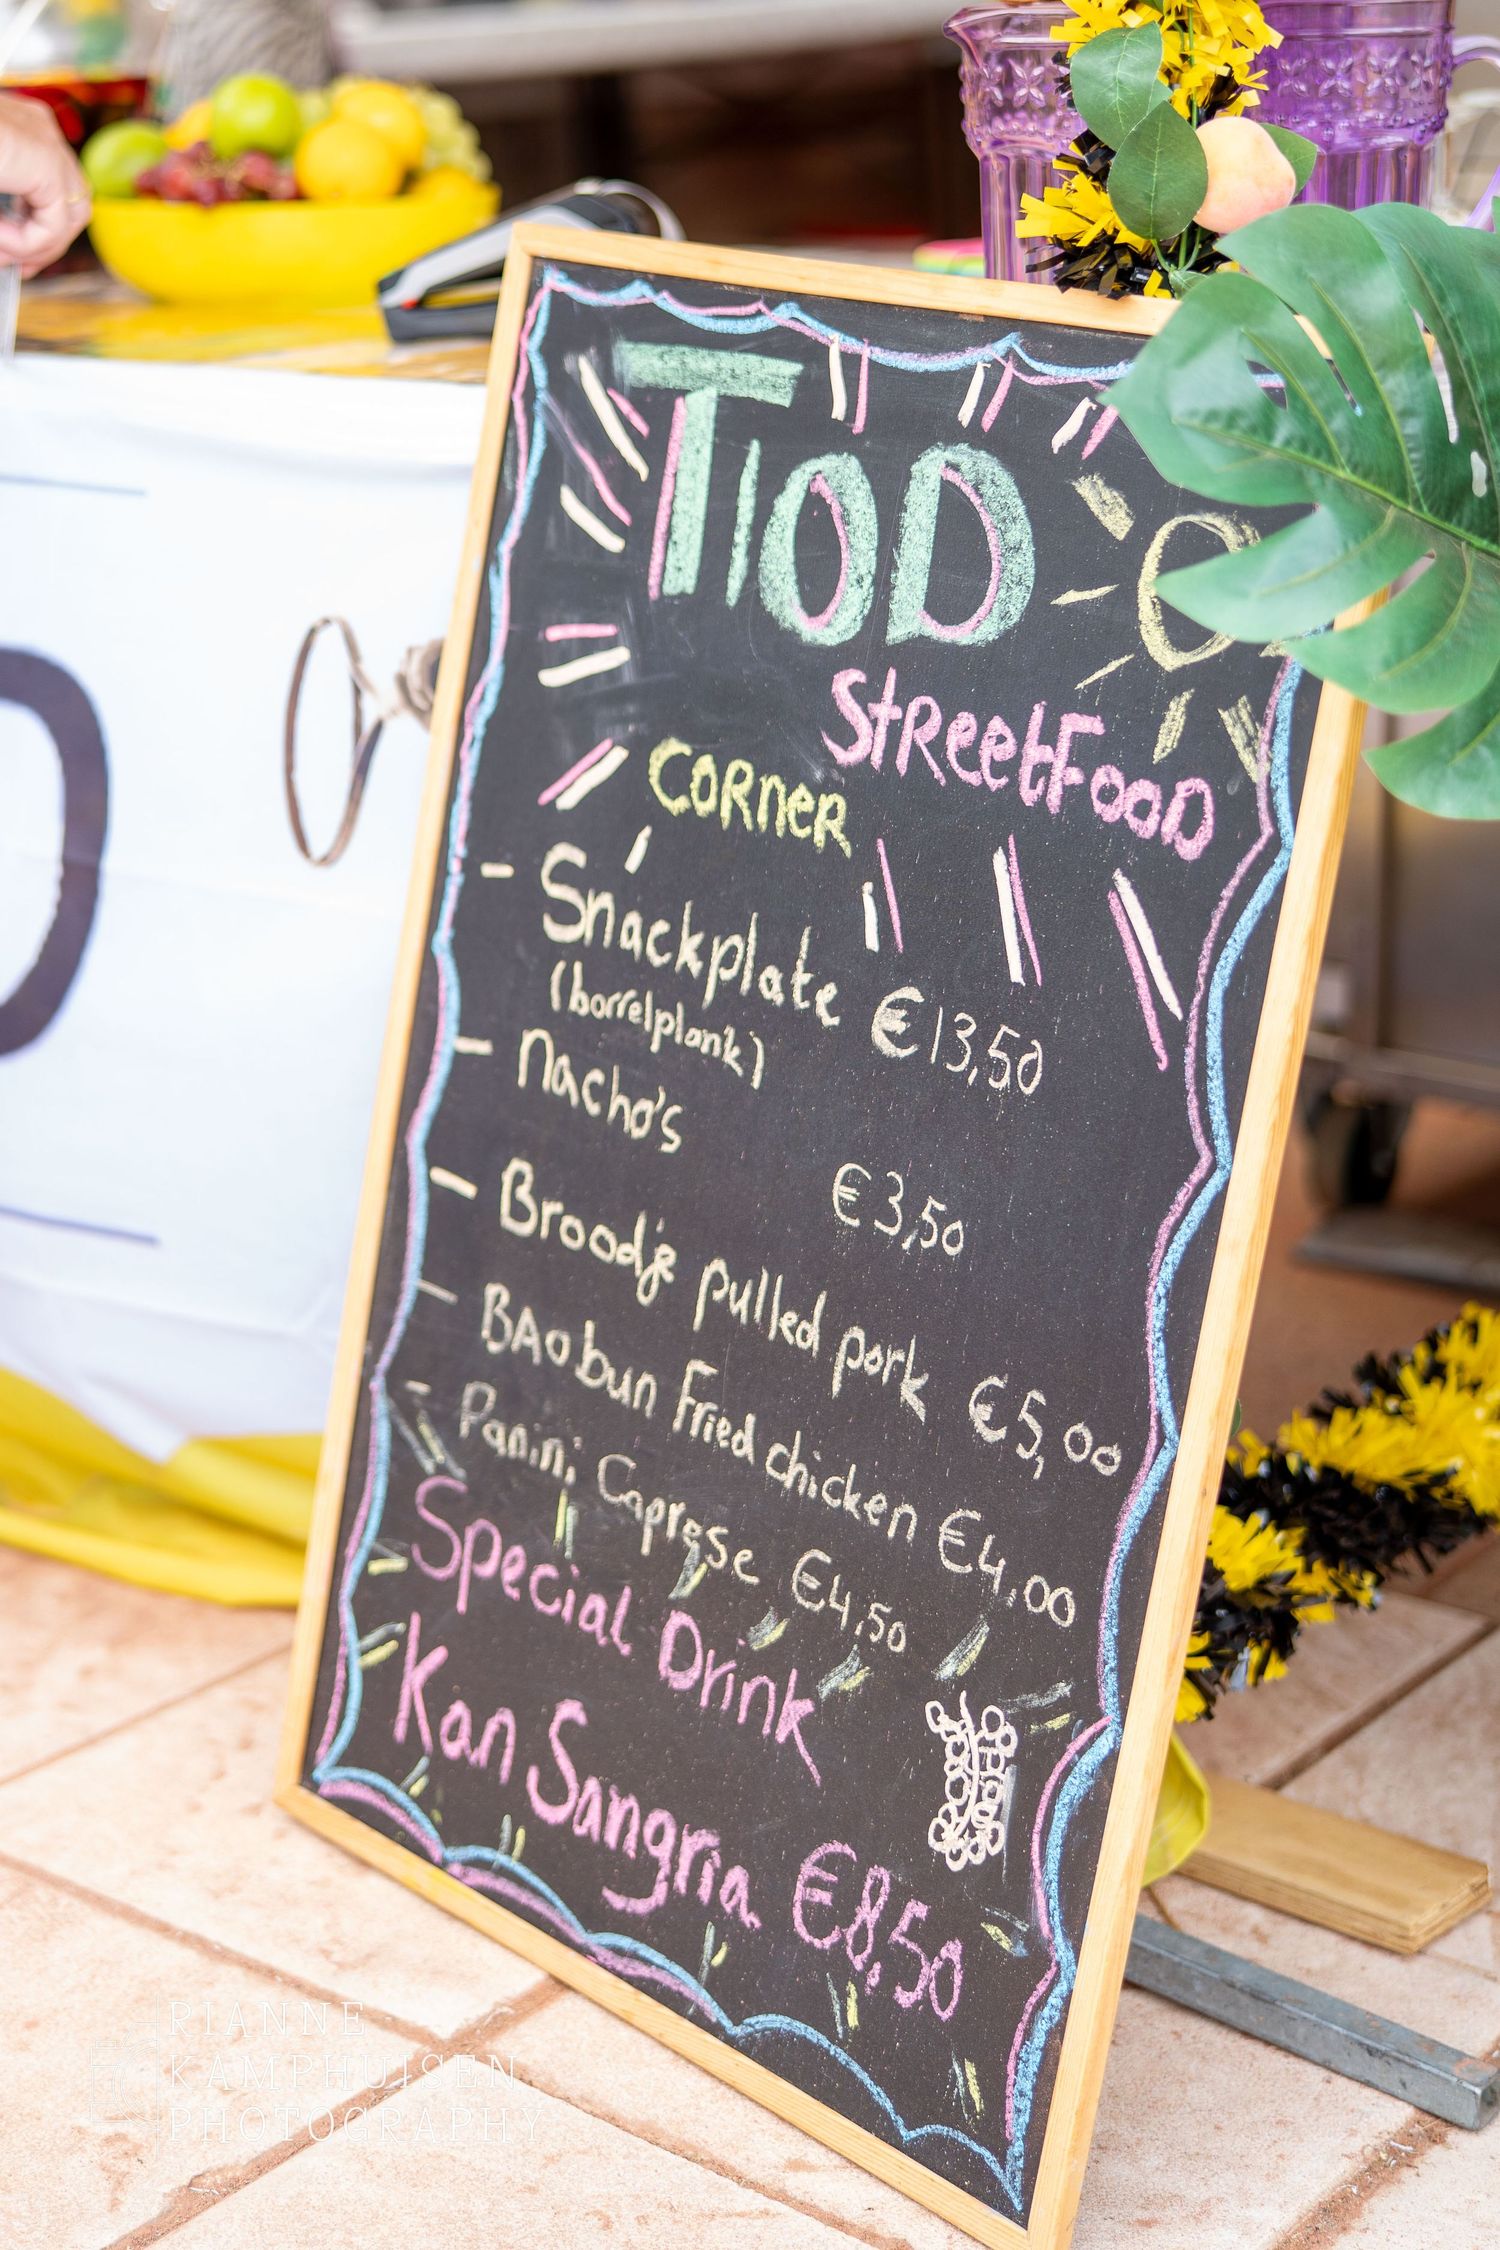 TIOD
StReetFooD
CORNER
- Snackplate €13,50
(borrelplank)
- nacho's
€3,50
- Broodje pulled pork €5,00
- BAo bun Fried chicken €4,00
- Panini Caprese €4,50
Special Drink
Kan Sangria €8,50
RIANNE
KAMPHUISEN
PHOTOGRAPHY